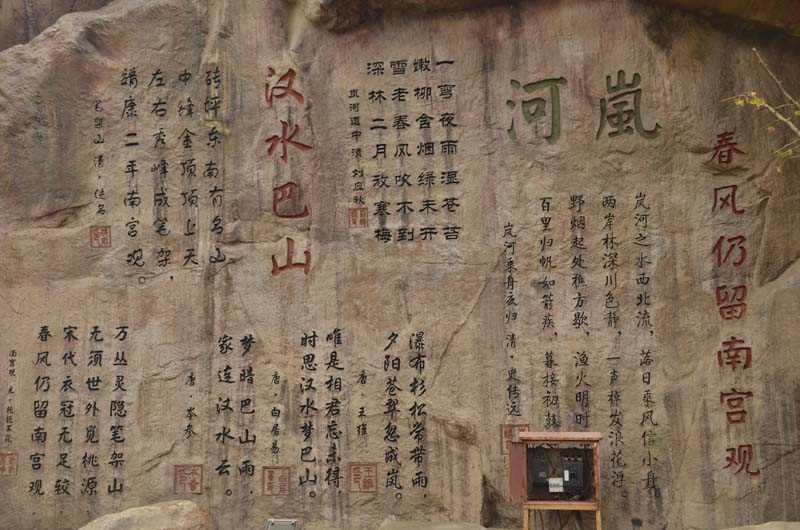 春风仍留南宫观
嵐河
岚河之水西北流，落日乘风信小舟
两岸林深川色静，一声棹发浪花浮。
野烟起处樵方歇，渔火明时
百里归帆如箭疾，暮接初鼓
岚河乘舟夜归 清，史传远
一弯夜雨湿苍苔
嫩柳含烟绿未开
雪老春风吹不到
深林二月放寒梅
岚河道中 清 刘应秋
汉水巴山
砖坪东南有名山
中峰金顶顶上天
左右秀峰成笔架，
靖康二年南宫观。
笔架山 清，佚名
瀑布杉松常带雨，
夕阳苍翠忽成岚。
唐，王维
唯是相君忘未得，
时思汉水梦巴山。
唐，白居易
梦暗巴山雨，
家连汉水云。
唐，岑参
万丛灵隐笔架山
无须世外觅桃源
宋代衣冠无足较
春风仍留南宫观
南宫观 元，